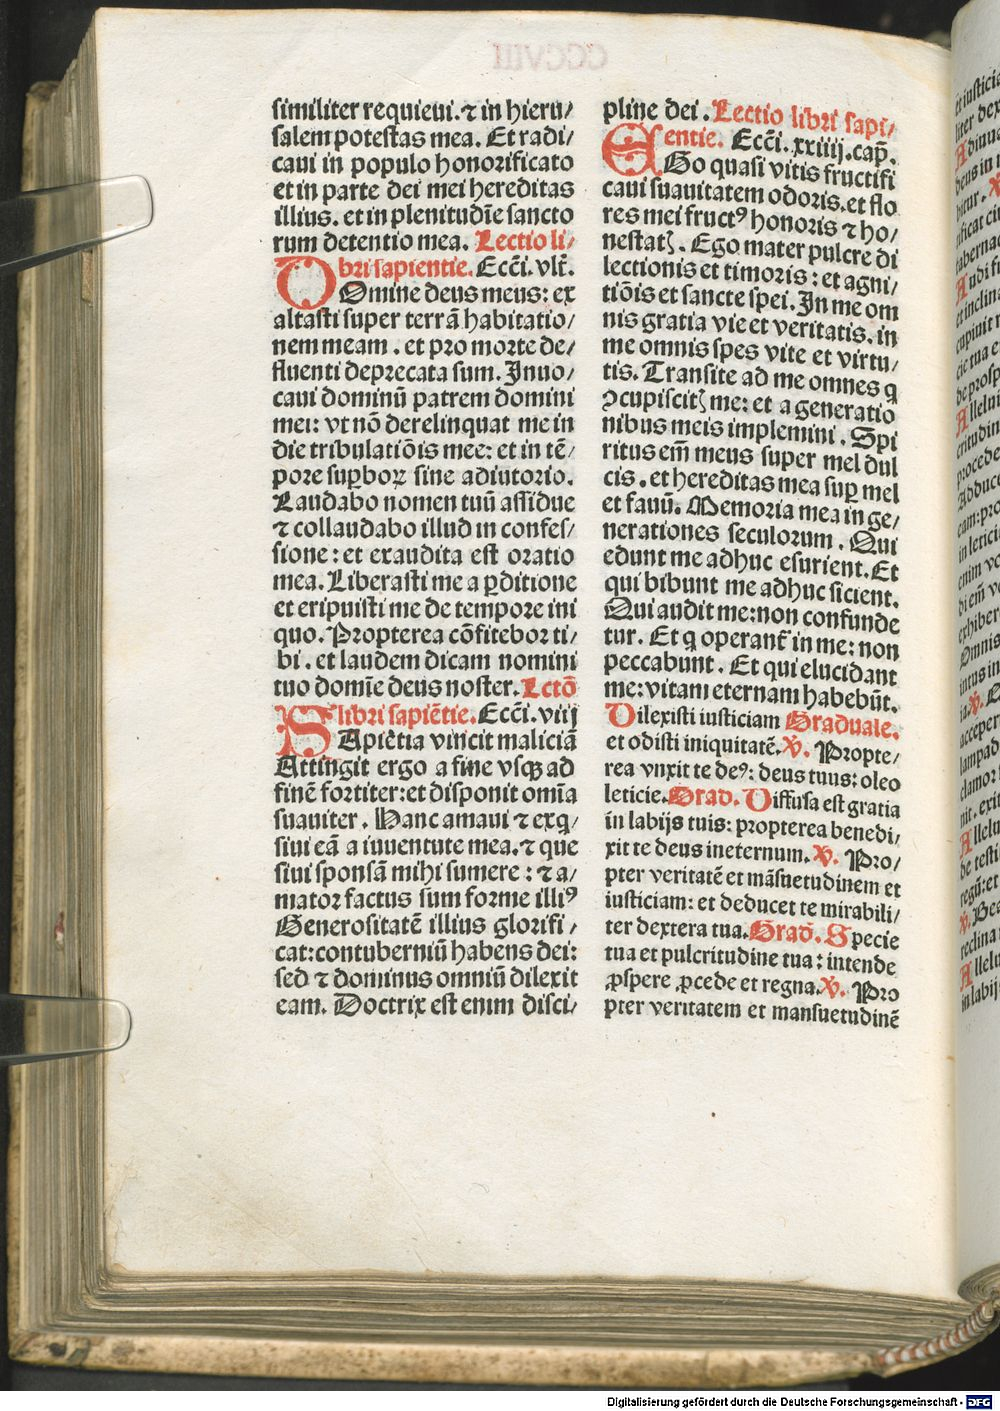 similiter requieui. ⁊ in hieru/
salem potestas mea. Et radi/
caui in populo honorificato
et in parte dei mei hereditas
illius. et in plenitudīe sancto
rum detentio mea. Lectio li/
bri sapientie. Eccī. vlt̄.
DOmine deus meus: ex
altasti super terrā habitatio/
nem meam. et pro morte de/
fluenti deprecata sum. Inuo/
caui dominū patrem domini
mei: vt nō derelinquat me in
die tribulatiōis mee: et in tē/
pore suꝑboꝝ sine adiutorio.
Laudabo nomen tuū assidue
⁊ collaudabo illud in confes/
sione: et exaudita est oratio
mea. Liberasti me a ꝑditione
et eripuisti me de tempore ini
quo. Propterea cōfitebor ti/
bi. et laudem dicam nomini
tuo domīe deus noster. Lctō
libri sapiētie. Eccī. viij
SApiētia vincit maliciā
Attingit ergo a fine vsqꝫ ad
finē fortiter: et disponit omīa
suauiter. Hanc amaui ⁊ exq/
siui eā a iuuentute mea. ⁊ que
siui sponsā mihi sumere: ⁊ a/
mator factus sum forme illiꝰ
Generositatē illius glorifi/
cat: contuberniū habens dei:
sed ⁊ dominus omniū dilexit
eam. Doctrix est enim disci/
pline dei. Lectio libri sapi/
entie. Eccī. xxiiij. cap̄.
EGo quasi vitis fructifi
caui suauitatem odoris. et flo
res mei fructꝰ honoris ⁊ ho/
nestatꝫ. Ego mater pulcre di
lectionis et timoris: et agni/
tiōis et sancte spei. In me om
nis gratia vie et veritatis. in
me omnis spes vite et virtu/
tis. Transite ad me omnes q
ꝯcupiscitꝫ me: et a generatio
nibus meis implemini. Spi
ritus em̄ meus super mel dul
cis. et hereditas mea suꝑ mel
et fauū. Memoria mea in ge/
nerationes seculorum. Qui
edunt me adhuc esurient. Et
qui bibunt me adhuc sicient.
Qui audit me: non confunde
tur. Et q operant̄ in me: non
peccabunt. Et qui elucidant
me: vitam eternam habebūt.
Dilexisti iusticiam Graduale.
et odisti iniquitatē. ℣. Propte/
rea vnxit te deꝰ: deus tuus: oleo
leticie. Grad. Diffusa est gratia
in labijs tuis: propterea benedi/
xit te deus ineternum. ℣. Pro/
pter veritatē et māsuetudinem et
iusticiam: et deducet te mirabili/
ter dextera tua. Grad. Specie
tua et pulcritudine tua: intende
ꝓspere ꝓcede et regna. ℣. Pro
pter veritatem et mansuetudinē
Digitalisierung gefördert durch die Deutsche Forschungsgemeinschaft - DFG